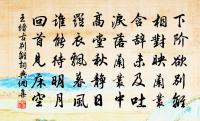 下階欲別離
相對映蘭叢
含辭未及吐
淚落蘭叢中
高堂靜秋日
羅衣飄暮風
誰能待明月
回首見床空
王縉古別離詞典網集